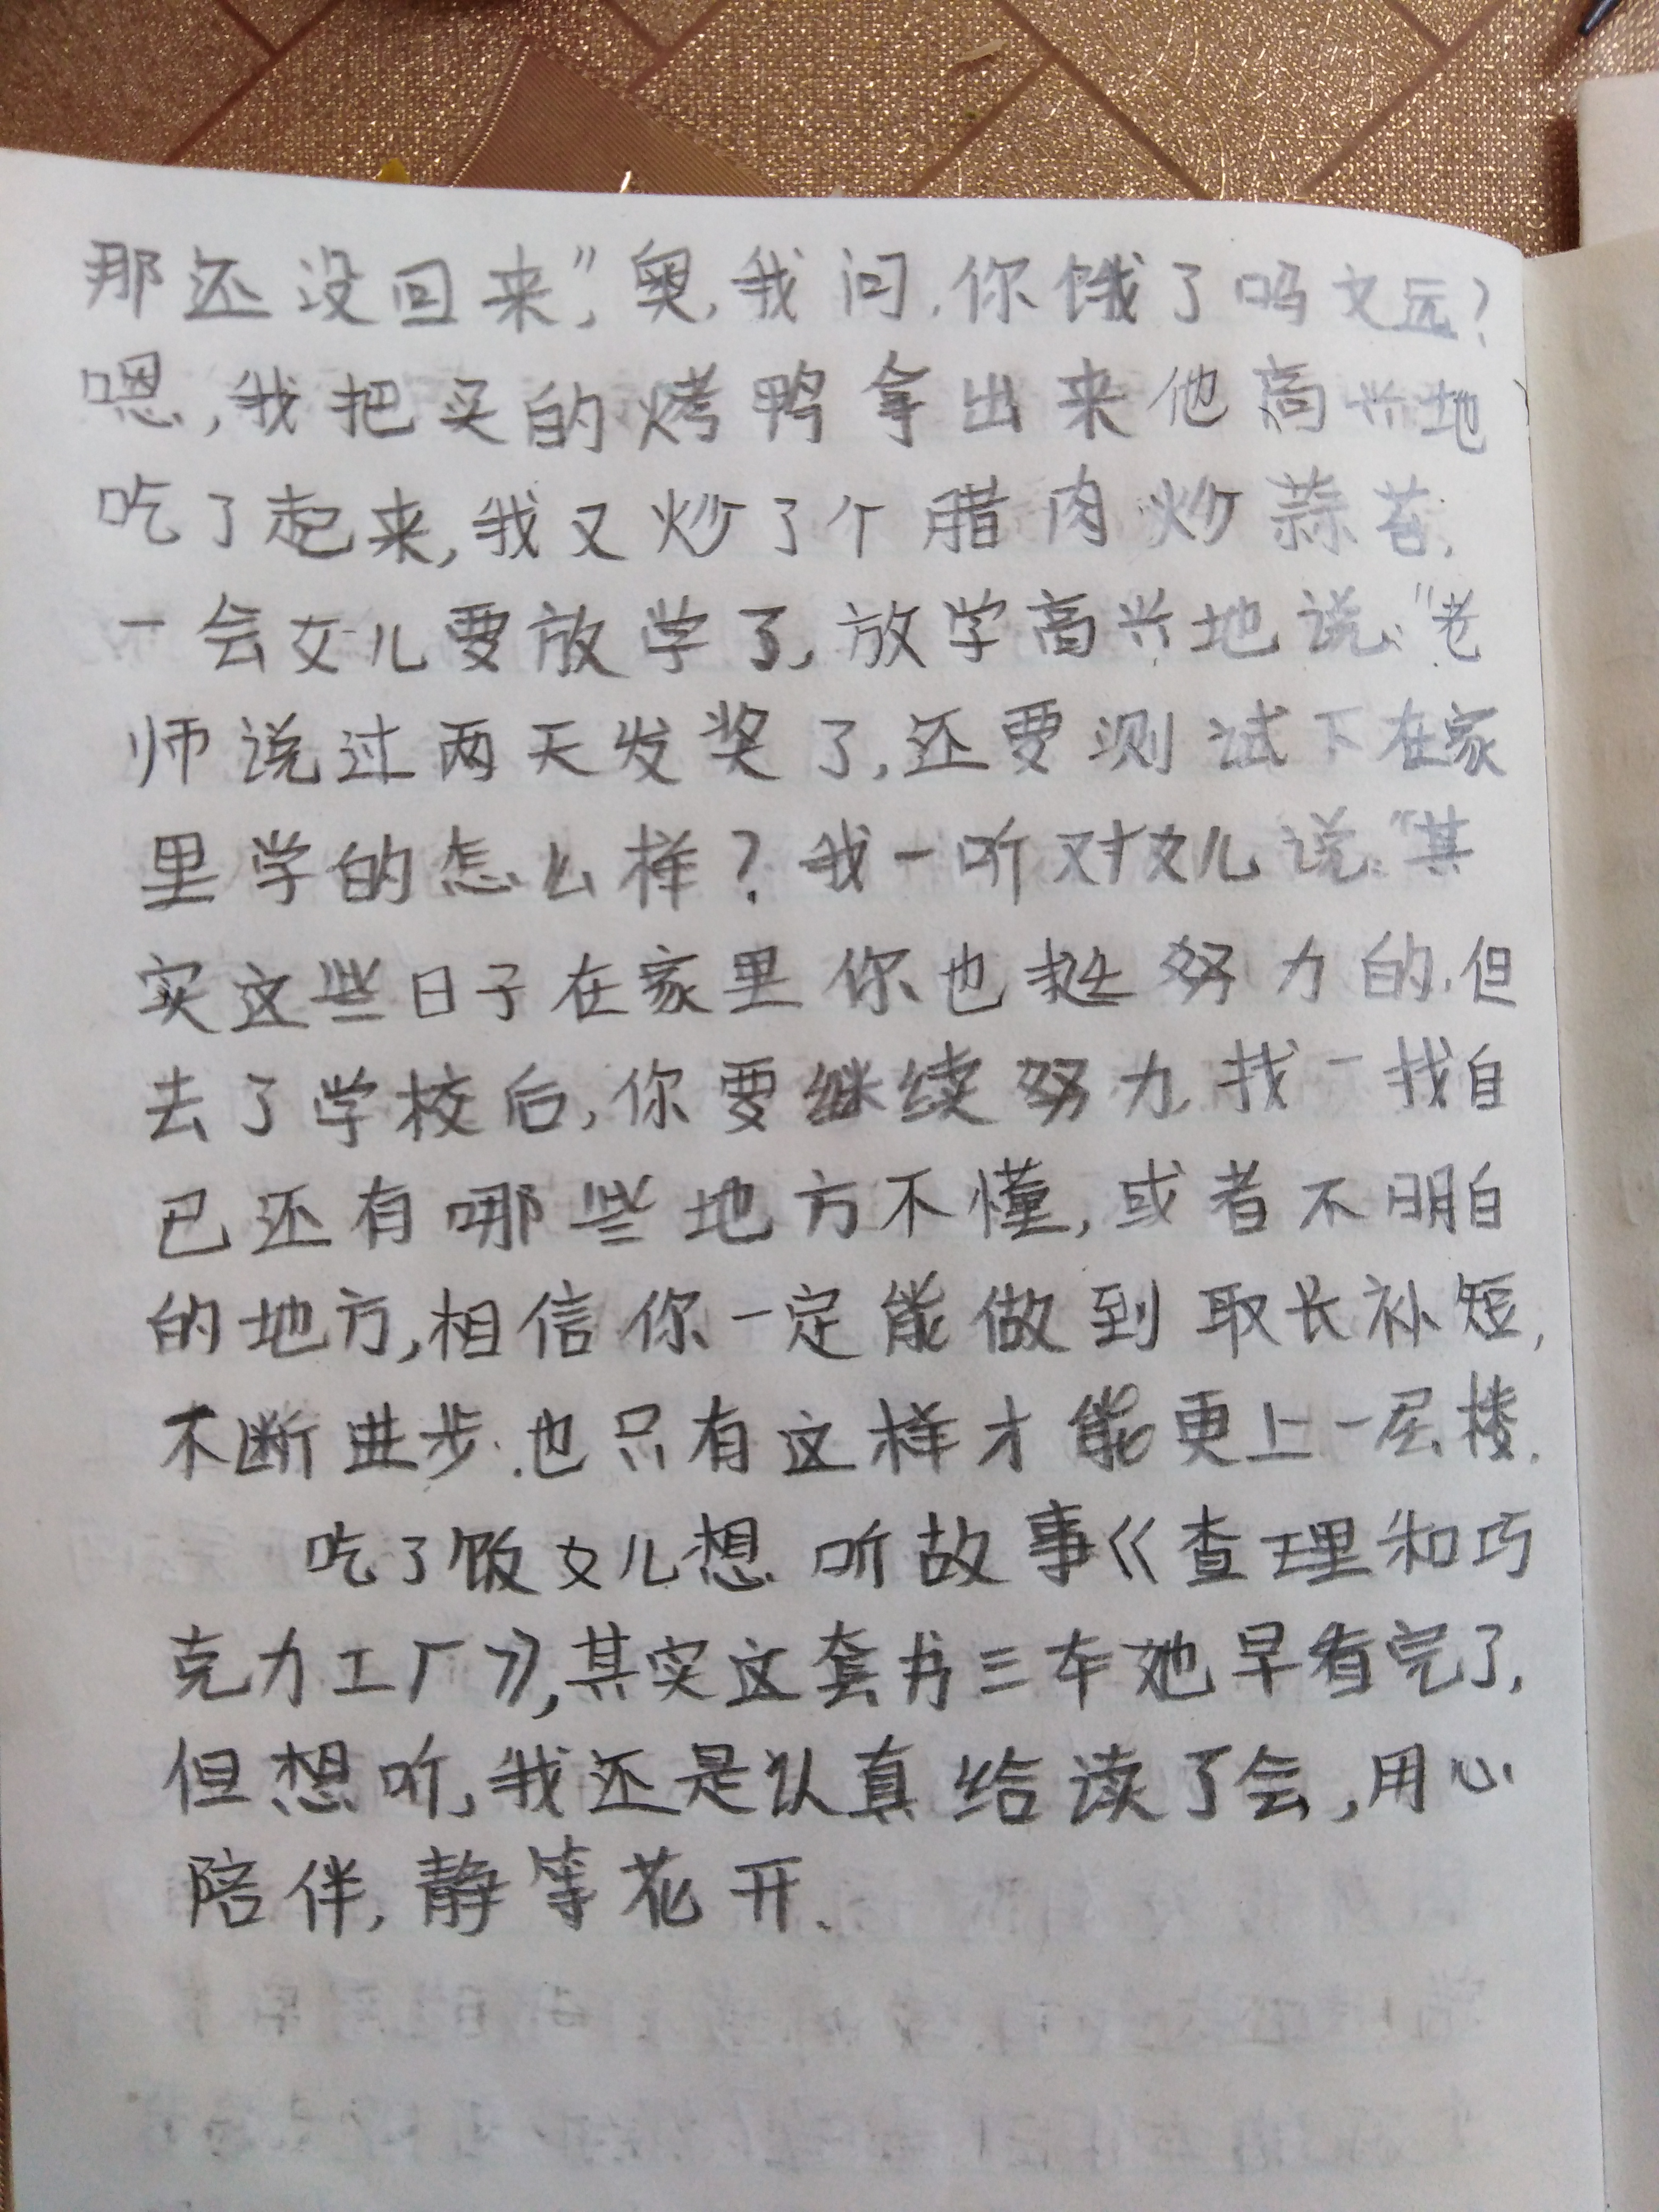 那还没回来”，奥，我问，你饿了吗文远？
嗯，我把买的烤鸭拿出来他高兴地
吃了起来，我又炒了个腊肉炒蒜苔，
一会女儿要放学了，放学高兴地说：“老
师说过两天发奖了，还要测试下在家
里学的怎么样？我一听对女儿说：“其
实这些日子在家里你也挺努力的，但
去了学校后，你要继续努力，找一找自
己还有哪些地方不懂，或者不明白
的地方，相信你一定能做到取长补短，
不断进步，也只有这样才能更上一层楼。
吃了饭女儿想听故事《查理和巧
克力工厂》，其实这套书三本她早看完了，
但想听，我还是认真给读了会，用心
陪伴，静等花开。